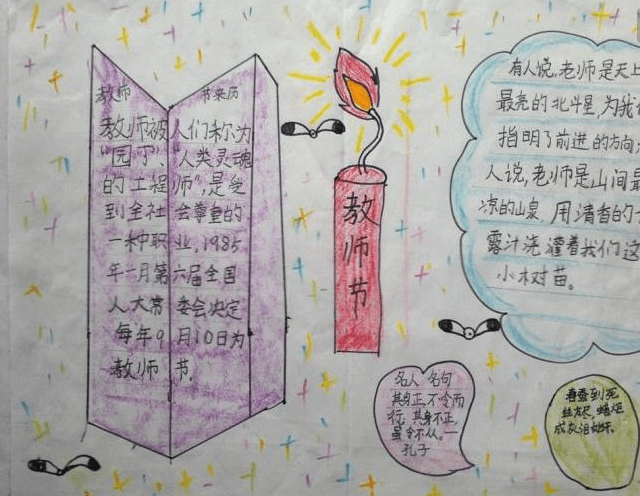 教师 节来历
教师被人们称为
“园丁”、“人类灵魂
的工程师”,是受
到全社会尊重的
一种职业,1985
年一月第六届全国
人大常委会决定
每年9月10日为
教师节.
教师节
有人说,老师是天上
最亮的北斗星,为我
指明了前进的方向
人说,老师是山间
凉的山泉,用清香的
露汁浇灌着我们这
小树苗。
名人名句
其身正,不令而
行,其身不正,
虽令不从。一
孔子
春蚕到死
丝方尽 蜡炬
成灰泪始干